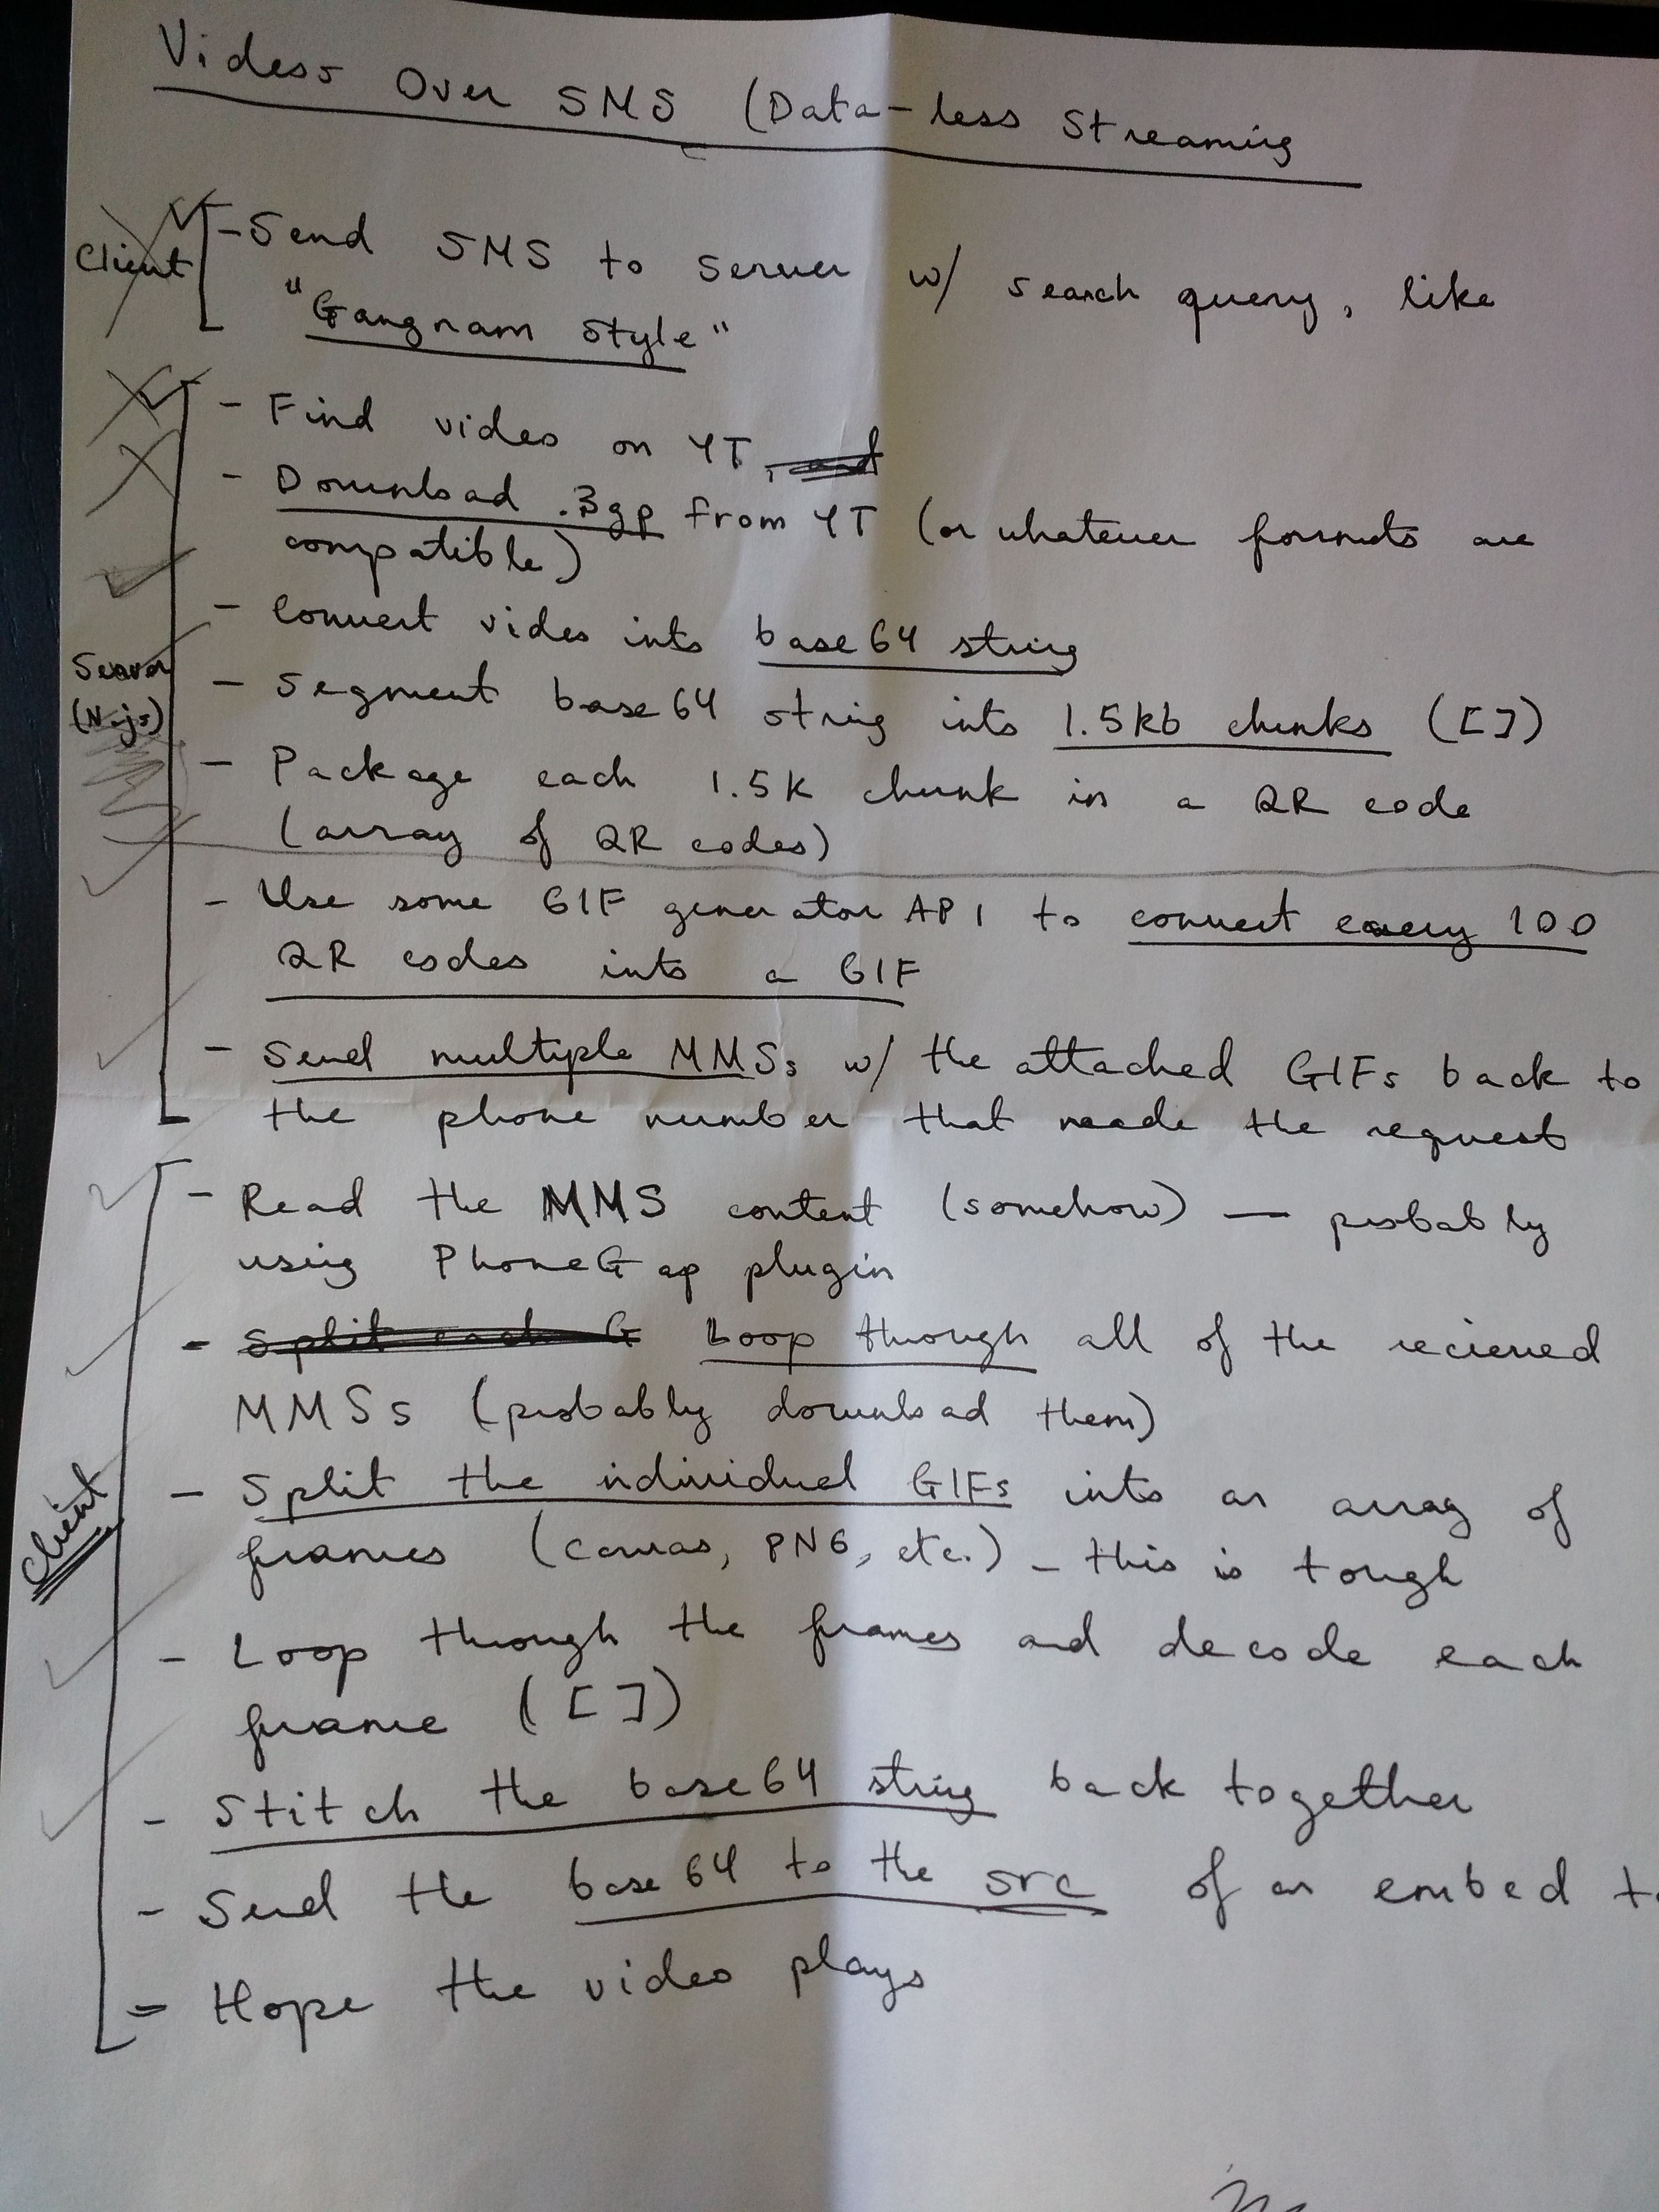 Videos Over SMS (Data-less Streaming
Client
- Send SMS to server w/ search query, like
"Gangnam Style"
- Find video on YT, and
- Download .3gp from YT (or whatever formats are
compatible)
- Convert video into base64 string
Server
(N.js)
- Segment base64 string into 1.5kb chunks ([])
- Package each 1.5K chunk in a QR code
(array of QR codes)
- Use some GIF generator API to convert every 100
QR codes into a GIF
- Send multiple MMSs w/ the attached GIFs back to
the phone number that made the request
- Read the MMS content (somehow) — probably
using PhoneGap plugin
- Split each G Loop through all of the recieved
MMSs (probably download them)
Client
- Split the individual GIFs into an array of
frames (canvas, PNG, etc.) - this is tough
- Loop through the frames and decode each
frame ([])
- Stitch the base64 string back together
- Send the base64 to the src of an embed
- Hope the video plays